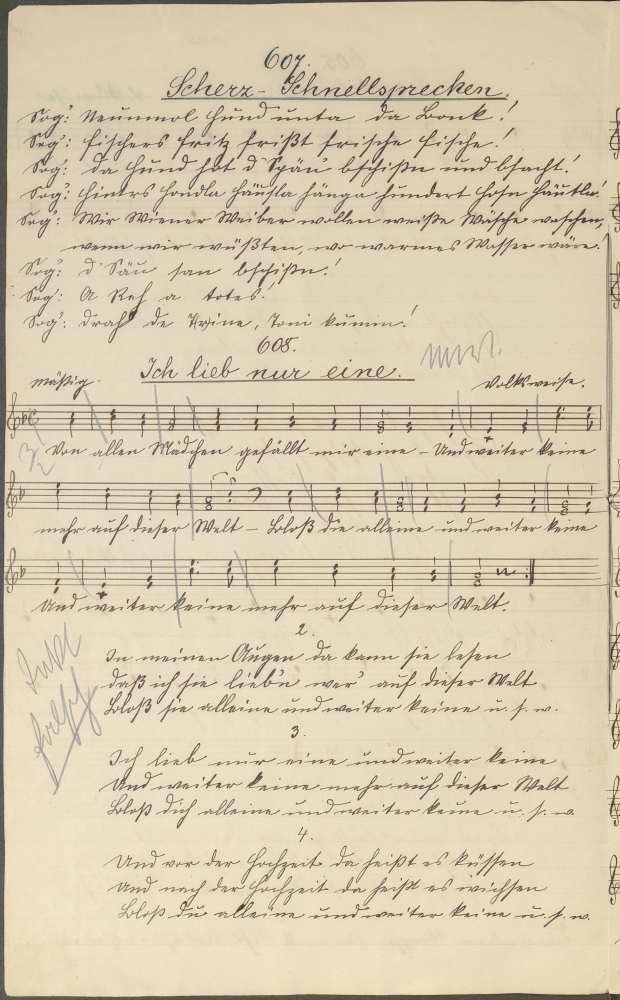 607.
Scherz-Schnellsprecken.
Sog': Neunmol Hund unta da Bonk!
Sog': Fischers Fritz frißt frische Fische!
Sog': Da Hund hot d' Späu bschißn und bsacht!
Sog': Hinters Handla Häusla hänga hundert Hosn Häutla!
Sog': Wir Wiener Weiber wollen weiße Wäsche waschen,
wenn wir wüßten, wo warmes Wasser wäre.
Sog': d' Säu san bschißn!
Sog': A Reh a totes!
Sog': Drah de Trine, Toni kumm!
608.
Ich lieb nur eine.
mäßig. Volksweise.
Von allen Mädchen gefällt mir eine – Und weiter keine
mehr auf dieser Welt – Bloß die alleine und weiter keine
Und weiter keine mehr auf dieser Welt.
2.
In meinen Augen da kann sie lesen
daß ich sie lieb'n wer' auf dieser Welt
Bloß sie alleine und weiter keine u. s. w.
Takt
falsch
3.
Ich lieb nur eine und weiter keine
Und weiter keine mehr auf dieser Welt
Bloß dich alleine und weiter keine u. s. w.
4.
Und vor der Hochzeit da heißt es küssen
Und nach der Hochzeit da heißt es wichsen
Bloß du alleine und weiter keine u. s. w.